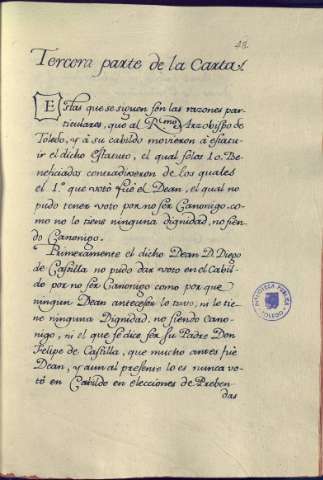 48.
Tercera parte de la Carta.
Estas que se siguen son las razones par-
ticulares, que al R.mo Arzobispo de
Toledo, y à su cabildo movieron à estatu-
ir el dicho Estatuto, el qual solos 10. Be-
neficiados contradixeron de los quales
el 1.º que votó fué el Dean, el qual no
pudo tener voto por no ser Canonigo. co-
mo no lo tiene ninguna dignidad, no sien-
do Canonigo.
Primeramente el dicho Dean D. Diego
de Castilla no pudo dar voto en el Cabil-
do por no ser Canonigo como por que
ningun Dean antecesor lo tuvo, ni lo tie-
ne ninguna Dignidad, no siendo Cano-
nigo, ni el que se dice ser su Padre Don
Felipe de Castilla, que mucho antes fuè
Dean, y aun al presente lo es nunca vo-
tó en Cabildo en elecciones de Preben
das
BIBLIOTECA PUBLICA